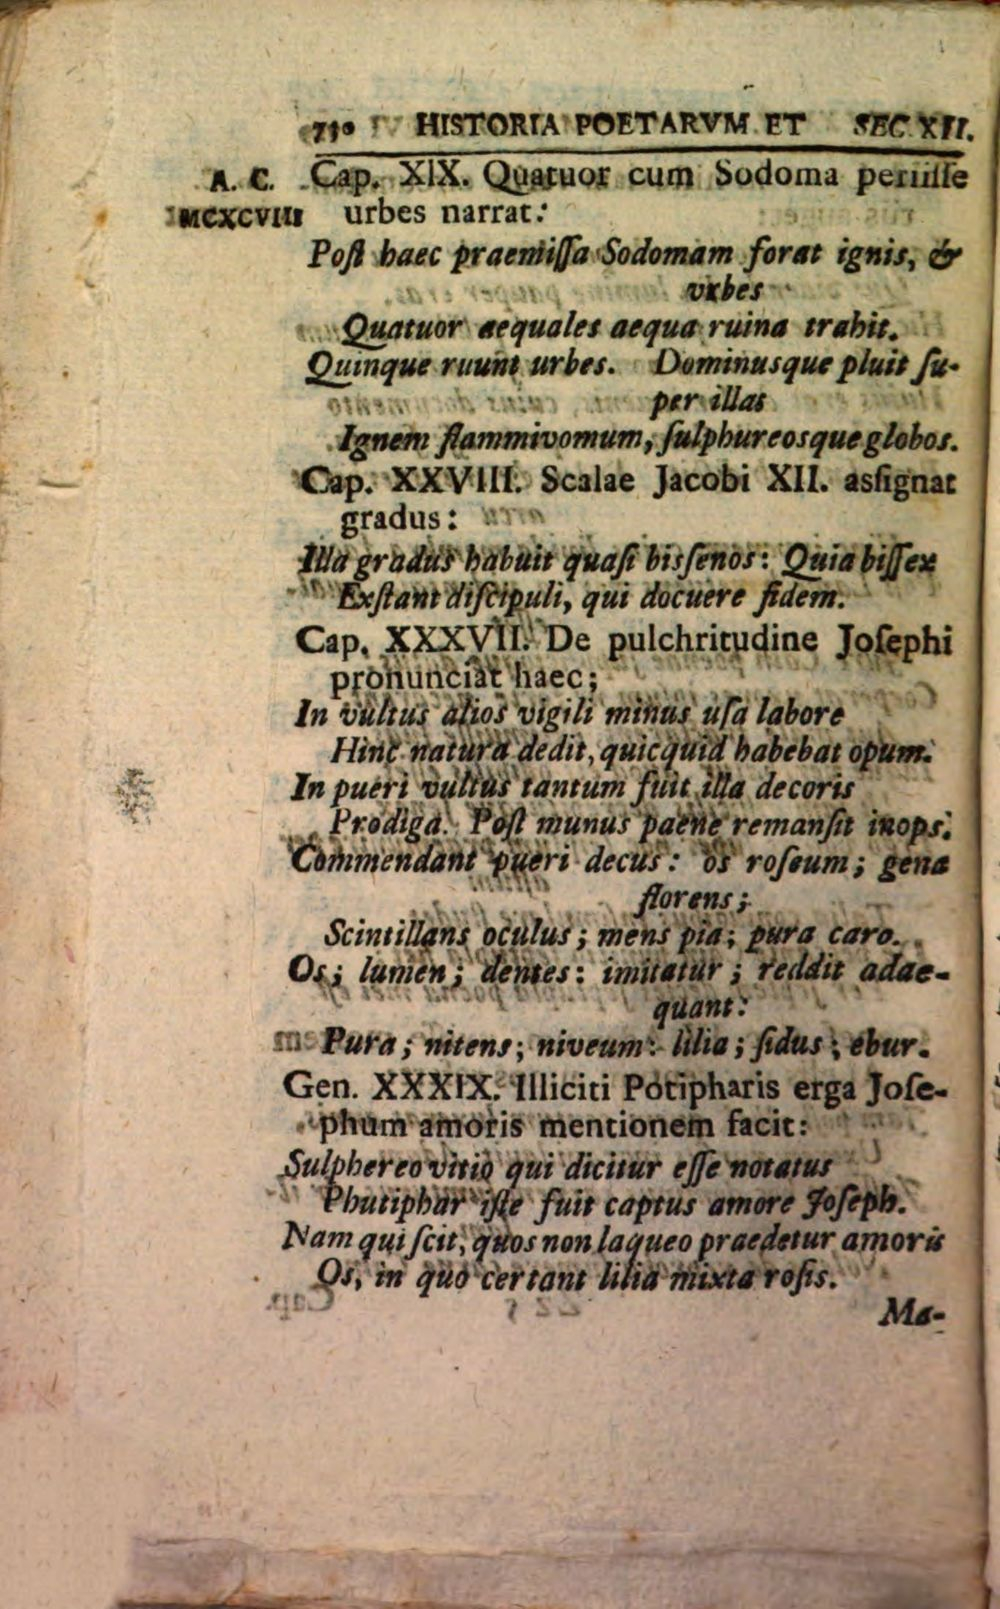 710 HISTORIA POETARVM ET SEC. XII.
A. C. Cap. XIX. Quatuor cum Sodoma periiſſe
MCXCVIII urbes narrat:
Poſt haec praemiſſa Sodomam forat ignis, &
urbes
Quatuor aequales aequa ruina trahit.
Quinque ruunt urbes. Dominusque pluit ſu-
per illas
Ignem flammivomum, ſulphureosque globos.
Cap. XXVIII. Scalae Jacobi XII. asſignat
gradus:
Illa gradus habuit quaſi bisſenos: Quia biſſex
Exſtant diſcipuli, qui docuere fidem.
Cap. XXXVII. De pulchritudine Joſephi
pronunciat haec;
In vultus alios vigili minus uſa labore
Hinc natura dedit, quicquid habebat opum.
In pueri vultus tantum fuit illa decoris
Prodiga. Poſt munus paene remanſit inops.
Commendant pueri decus: os roſeum; gena
florens;
Scintillans oculus; mens pia; pura caro.
Os; lumen; dentes: imitatur; reddit adae-
quant:
Pura; nitens; niveum: lilia; ſidus; ebur.
Gen. XXXIX. Illiciti Potipharis erga Joſe-
phum amoris mentionem facit:
Sulphereo vitio qui dicitur eſſe notatus
Phutiphar iſte fuit captus amore Joſeph.
Nam qui ſcit, quos non laqueo praedetur amoris
Os, in quo certant lilia mixta roſis.
Ma-